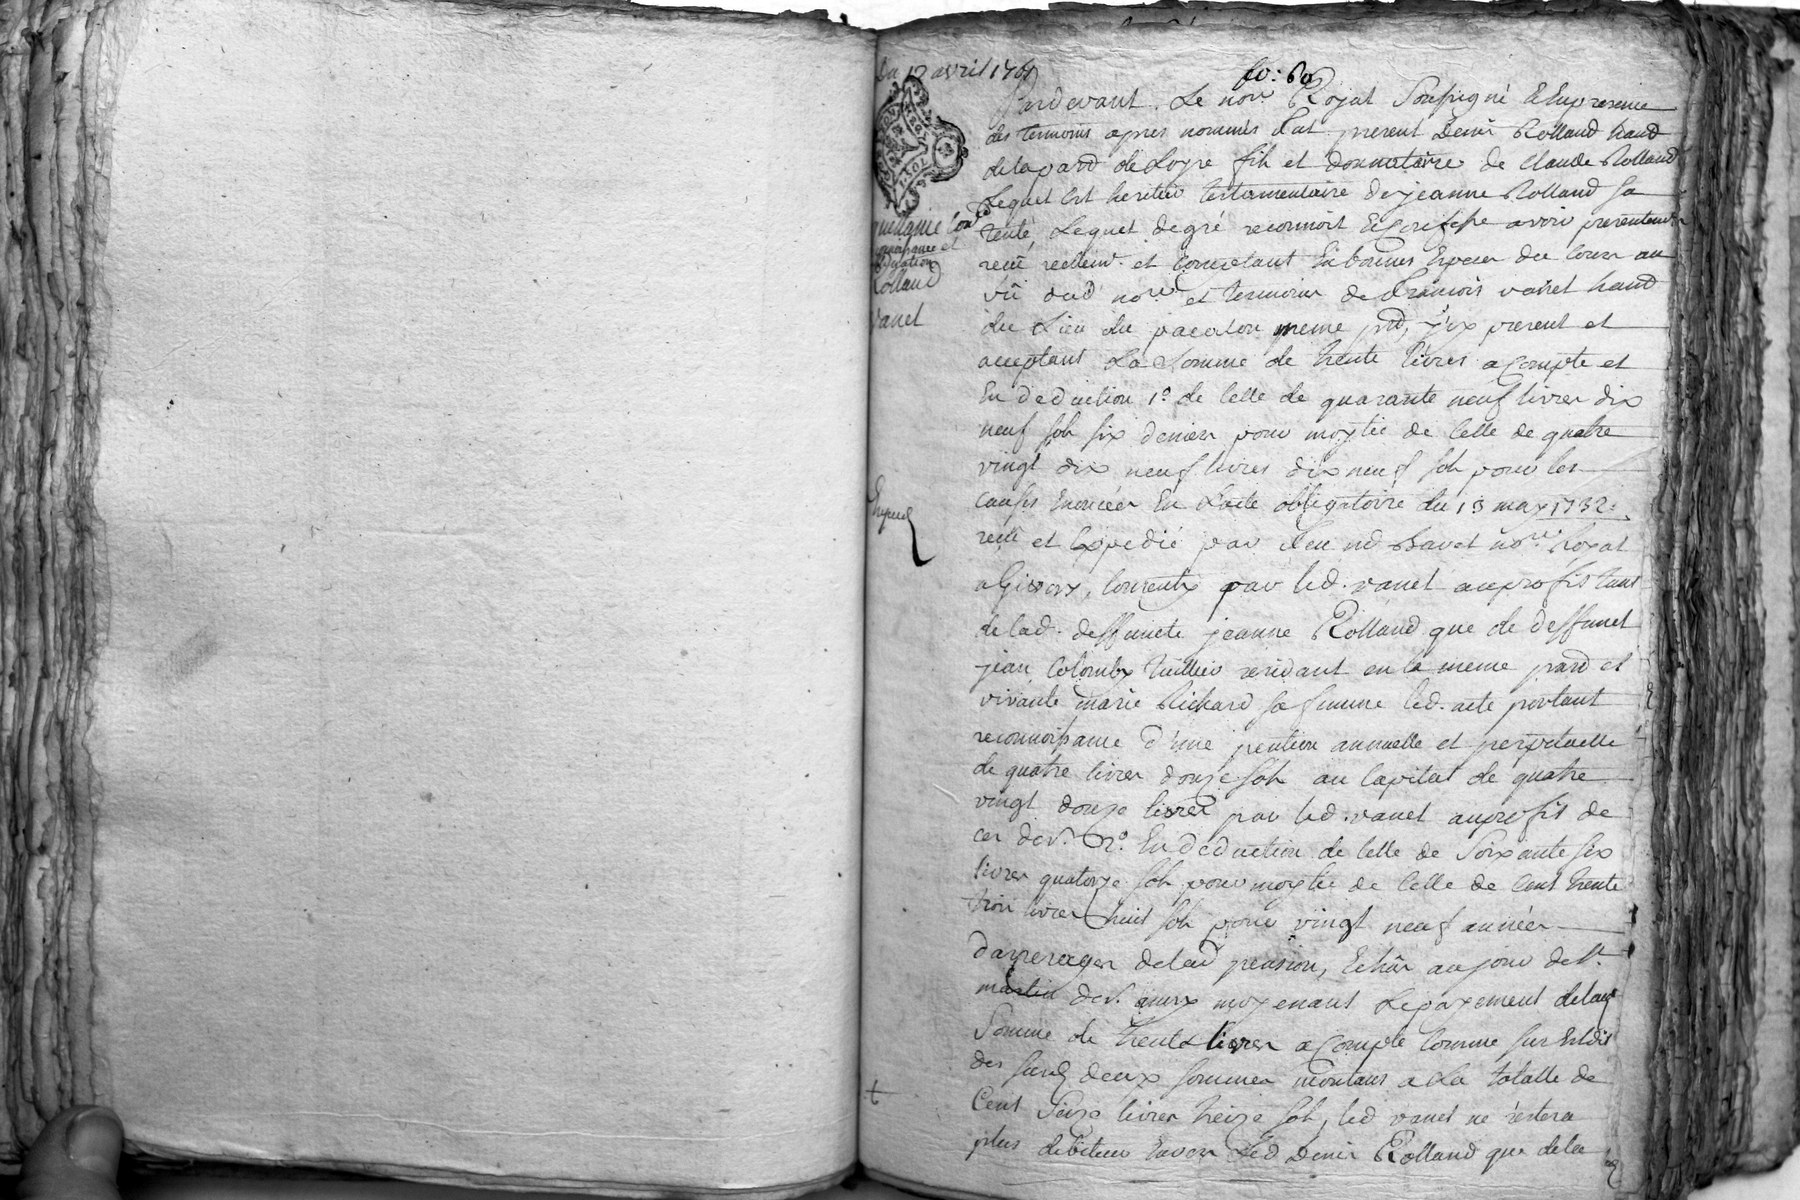 Du 12 avril 1761
fo: 60
Pardevant Le nore Royal Soussigné Et En presence
des temoins apres nommés Est present Denis Rolland haand
delapard de Loyre fils et donnataire de Claude Rolland
Lequel Est heritier testamentaire de jeanne Rolland sa
tente Lequel de gré reconnoit Et Confesse avoir presentemt
receu reellemt et Comptant En bonnes Especes du Cours au
vû dud nore et temoins de François vanel
du Lieu du même prd, icy present et
acceptant La Somme de trente livres a Compte et
En deduction 1° de Celle de quarante neuf livres dix
neuf sols six deniers pour moytié de Celle de quatre
vingt dix neuf livres dix neuf sols pour les
causes Enoncées En Lacte obligatoire du 13 may 1732:
receu et Expedié par feu Me Bavet nore Royal
a Givors, Consenty par led. vanel au profit tant
de lad. deffuncte jeanne Rolland que de deffunct
jean Colomby residant en la meme pard et
vivante marie Richard sa femme led. acte portant
reconnoissance d'une pention annuelle et perpetuelle
de quatre livres douze sols au Capital de quatre
vingt douze livres par led. vanel au profit de
ces dern. 2° En deduction de Celle de Soixante six
livres quatorze sols pour moytié de Celle de Cent trente
trois livres huit sols pour vingt neuf années
d'arrerages de lad pension, Echûs au jour de St
martin der. moyenant Le payement de lad
Somme de trente livres a Compte Comme sus Est dit
des susd deux sommes montans a La totalle de
Cent Seize livres treize sols, led vanel ne restera
plus debiteur Envers Led Denis Rolland que de la
quittance
et
deduction
Rolland
vanel
Expedié